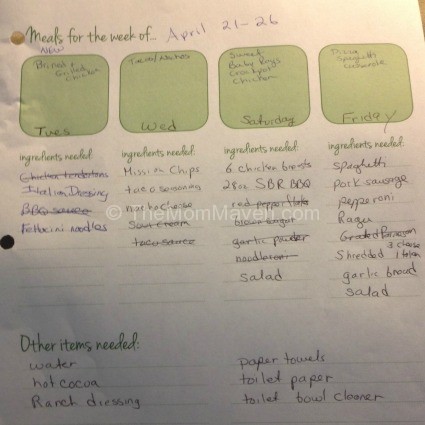 Meals for the week of... April 21-26
NEW
Brined +
Grilled
Chicken
Tues
Tacos/Nachos
Wed
Sweet
Baby Rays
Crockpot
Chicken
Saturday
Pizza
Spaghetti
Casserole
Friday
ingredients needed:
Chicken tenderloins
Italian Dressing
BBQ sauce
Fettucini noodles
ingredients needed:
Mission Chips
taco seasoning
nacho cheese
sour cream
taco sauce
ingredients needed:
6 chicken breasts
28oz SBR BBQ
red pepper flake
brown sugar
garlic powder
salad
ingredients needed:
spaghetti
pork sausage
pepperoni
Ragu
Grated Parmesan
Shredded 3 cheese
garlic bread
salad
© TheMomMaven.com
Other items needed:
water
hot cocoa
Ranch dressing
paper towels
toilet paper
toilet bowl cleaner